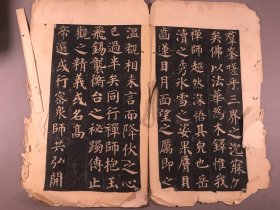 群峯嗟乎三界之沉寐久
矣佛以法華為木鐸惟我
禪師超然深悟其皃也岳
瀆之秀冰雪之姿果脣貝
齒蓮目月面望之厲即
溫覩相未言而降伏之心
已過半矣同行禪師抱玉
飛錫襲衡台之秘躅傳止
觀之精義或名高
帝選或行密眾師共弘開